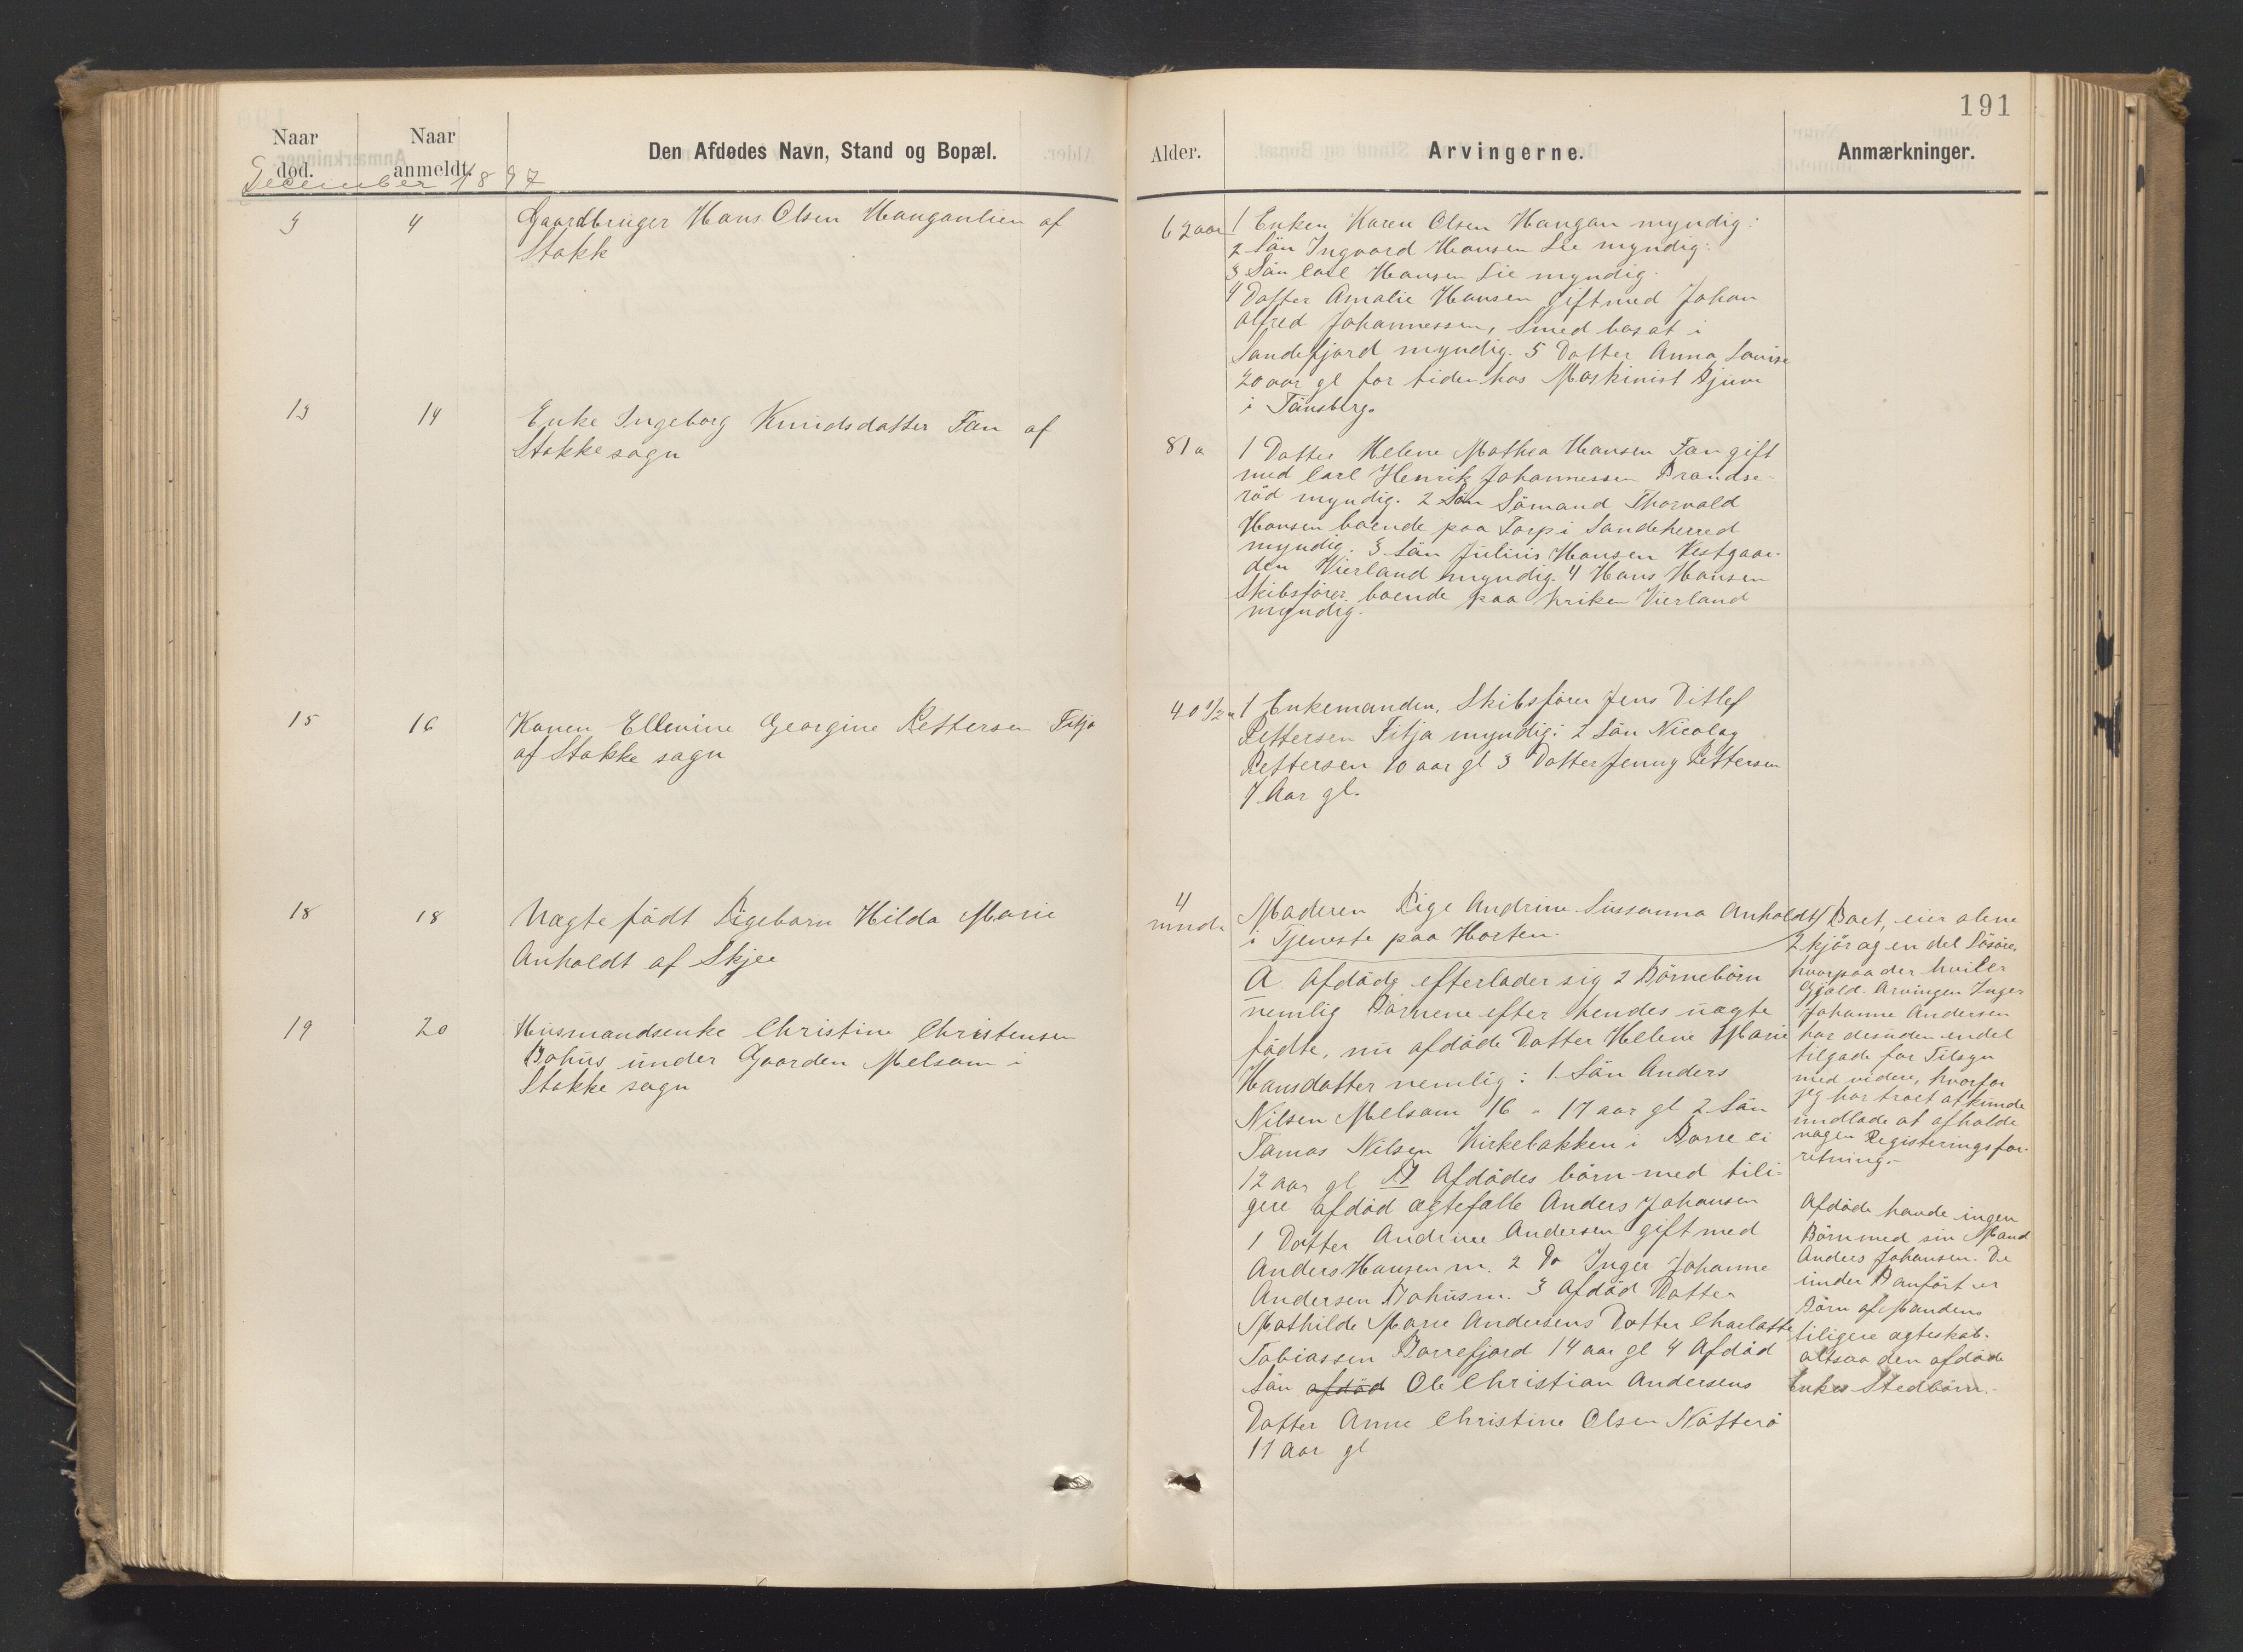 191
Naar død.
Naar anmeldt.
Den Afdødes Navn, Stand og Bopæl.
Alder.
Arvingerne.
Anmærkninger.
December 1897
3
4
Gaardbruger Hans Olsen Hauganlien af
Stokk
62 aar
1 Enken Karen Olsen Haugan myndig:
2 Sön Ingvard Hansen Lie myndig:
3 Sön Carl Hansen Lie myndig.
4 Datter Amalie Hansen gift med Johan
Alfred Johannessen, Smed bosat i
Sandefjord myndig. 5 Datter Anna Louise
20 aar gl for tiden hos Maskinist Bjune
i Tönsberg.
13
14
Enke Ingeborg Knudsdatter Fan af
Stokke sogn
81 a
1 Datter Helene Mathea Hansen Fan gift
med Carl Henrik Johannessen Brandse-
röd myndig. 2 Sön Sömand Thorvald
Hansen boende paa Torp i Sandeherred
myndig. 3 Sön Julius Hansen Vestgaar-
den Vierland myndig. 4 Hans Hansen
Skibsförer boende paa Kriken Vierland
myndig.
15
16
Konen Ellevine Georgine Pettersen Fitja
af Stokke sogn
40 1/2 a
1 Enkemanden, Skibsförer Jens Ditlef
Pettersen Fitja myndig: 2 Sön Nicolay
Pettersen 10 aar gl 3 Datter Jenny Pettersen
7 Aar gl.
18
18
Uægte födt Pigebarn Hilda Marie
Anholdt af Skjee
4
mnd.
Moderen Pige Andrine Sussanna Anholdt
i Tjeneste paa Horten.
19
20
Husmandsenke Christine Christensen
Bohus under Gaarden Melsom i
Stokke sogn
A. Afdöde efterlader sig 2 Börnebörn
nemlig Börnene efter hendes uægte
födte, nu afdöde Datter Helene Marie
Hansdatter nemlig: 1. Sön Anders
Nilsen Melsom 16 a 17 aar gl 2 Sön
Tomas Nilsen Kirkebakken i Borre ei
12 aar gl B Afdödes börn med tili-
gere afdöd ægtefælle Anders Johansen
1 Datter Andrine Andersen gift med
Anders Hansen m. 2 Do Inger Johanne
Andersen Bohus m. 3 Afdöd Datter
Mathilde Marie Andersens Datter Charlotte
Tobiassen Borrefjord 14 aar gl 4 Afdöd
Sön afdöd Ole Christian Andersens
Datter Anne Christine Olsen Nötterö
11 Aar gl
Boet, eier alene
2 kjör og en del Lösöre,
hvorpaa der hviler
Gjæld. Arvingen Inger
Johanne Andersen
har desuden endel
tilgode for Tilsyn
med videre, hvorfor
jeg har troet at kunde
undlade at afholde
nogen Registeringsfor-
retning.-
Afdöde havde ingen
Börn med sin Mand
Anders Johansen. De
under B anfört er
Börn af Mandens
tiligere ægteskab.
altsaa den afdöde
Enkes Stedbörn.-